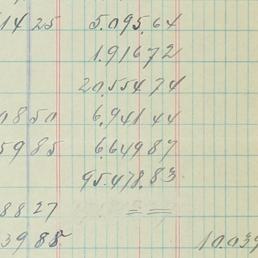 14 25 5.095.64
1.916 72
20.554.74
0850 6.941 44
5985 6.649 87
95.478.83
88 27 ==
39 88 10.039